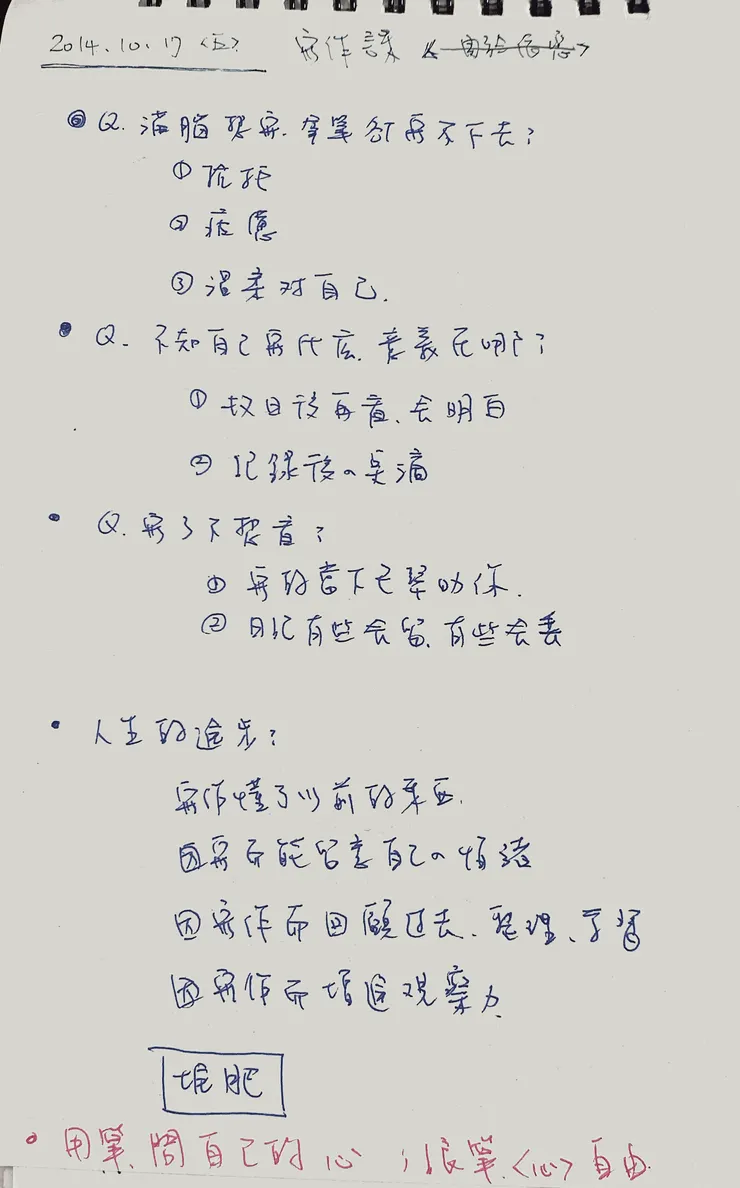 2014.10.17 <五> 寫作課
Q. 滿腦想寫. 拿筆卻寫不下去?
① 抗拒
②
③ 溫柔對自己.
Q. 不知自己寫什麼. 意義在哪?
① 改日後再看、會明白
② 記錄後の點滴
Q. 寫了不想看?
① 寫的當下已幫助你.
② 日記有些会留、有些会丟
人生的進步?
寫作懂了以前的東西.
因寫而能留意自己の情緒
因寫作而回顧过去、整理、学習
因寫作而增進观察力.
堆肥
用筆, 問自己的心 ; 讓筆.<心> 自由.